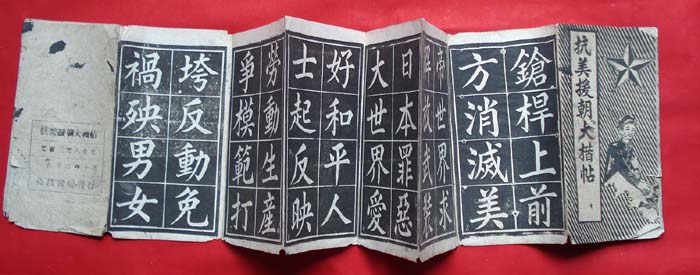 抗美援朝大楷帖
鎗桿上前
方消滅美
帝世界求
解放武裝
日本罪惡
大世界愛
好和平人
士起反映
勞動生產
爭模範打
垮反動免
禍殃男女
抗美援朝大楷帖